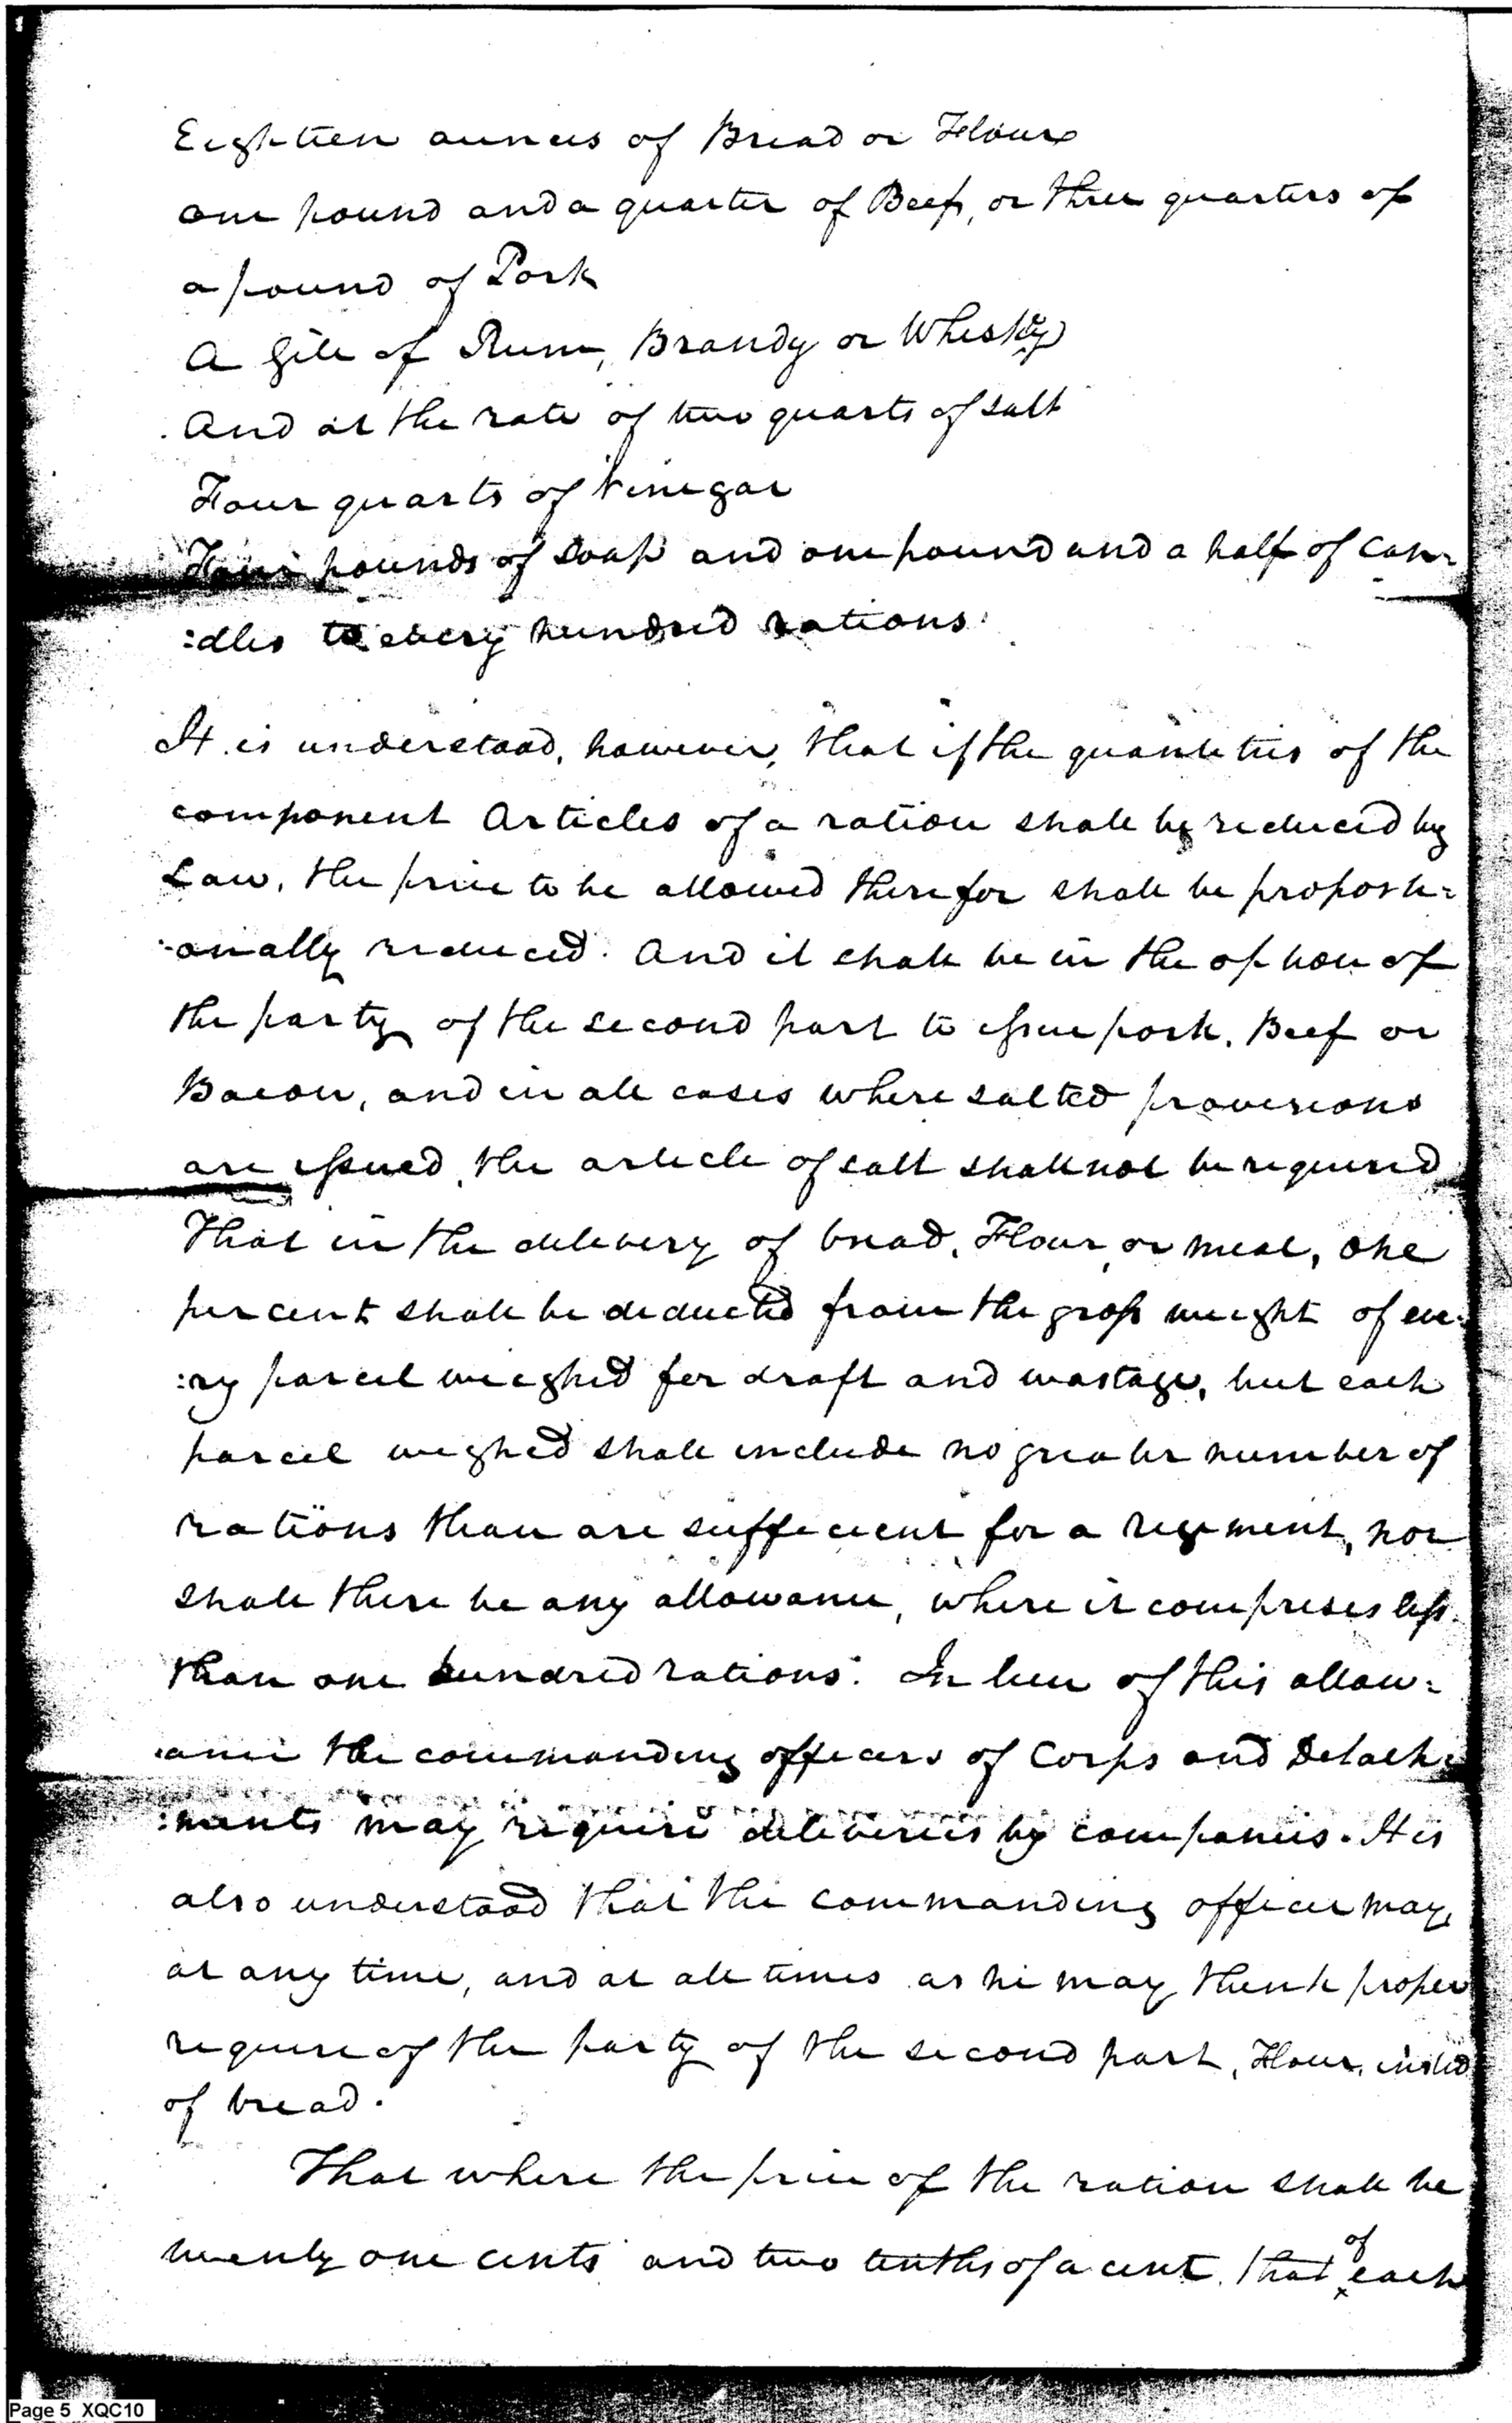 Eighteen ounces of Bread or Flour
one pound and a quarter of Beef, or three quarters of
a pound of Pork
A Gill of Rum, Brandy or Whiskey
And at the rate of two quarts of salt
Four quarts of Vinegar
Four pounds of soap and one pound and a half of can=
:dles to every hundred rations.
It is understood, however, that if the quantities of the
component Articles of a ration shall be reduced by
Law, the price to be allowed therefor shall be proporti=
:onally reduced. And it shall be in the option of
the party of the second part to issue pork, Beef or
Bacon, and in all cases where salted provisions
are issued, the article of salt shall not be required
That in the delivery of bread, Flour, or meal, one
per cent shall be deducted from the gross weight of eve:
:ry parcel weighed for draft and wastage, but each
parcel weighed shall include no greater number of
rations than are sufficient for a regiment, nor
shall there be any allowance, where it comprises less
than one hundred rations. In lieu of this allow=
:ance the commanding officers of Corps and Detach:
:ments may require deliveries by companies. It is
also understood that the commanding officer may,
at any time, and at all times as he may think proper
require of the party of the second part, Flour, insted
of bread.
That where the price of the ration shall be
twenty one cents and two tenths of a cent, that of each
Page 5 XQC10